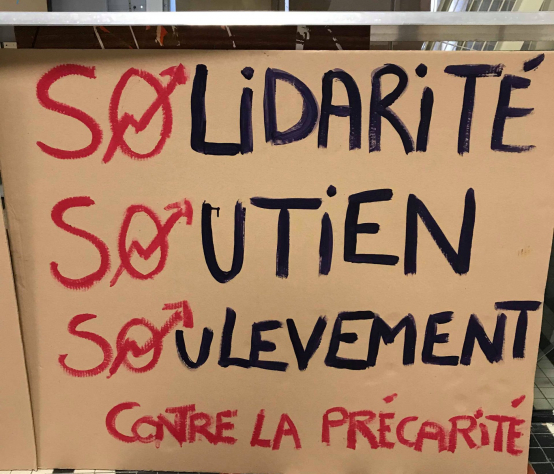 SOLiDARiTÉ
SOUTiEN
SOULEVEMENT
CONTRE LA PRÉCARiTÉ